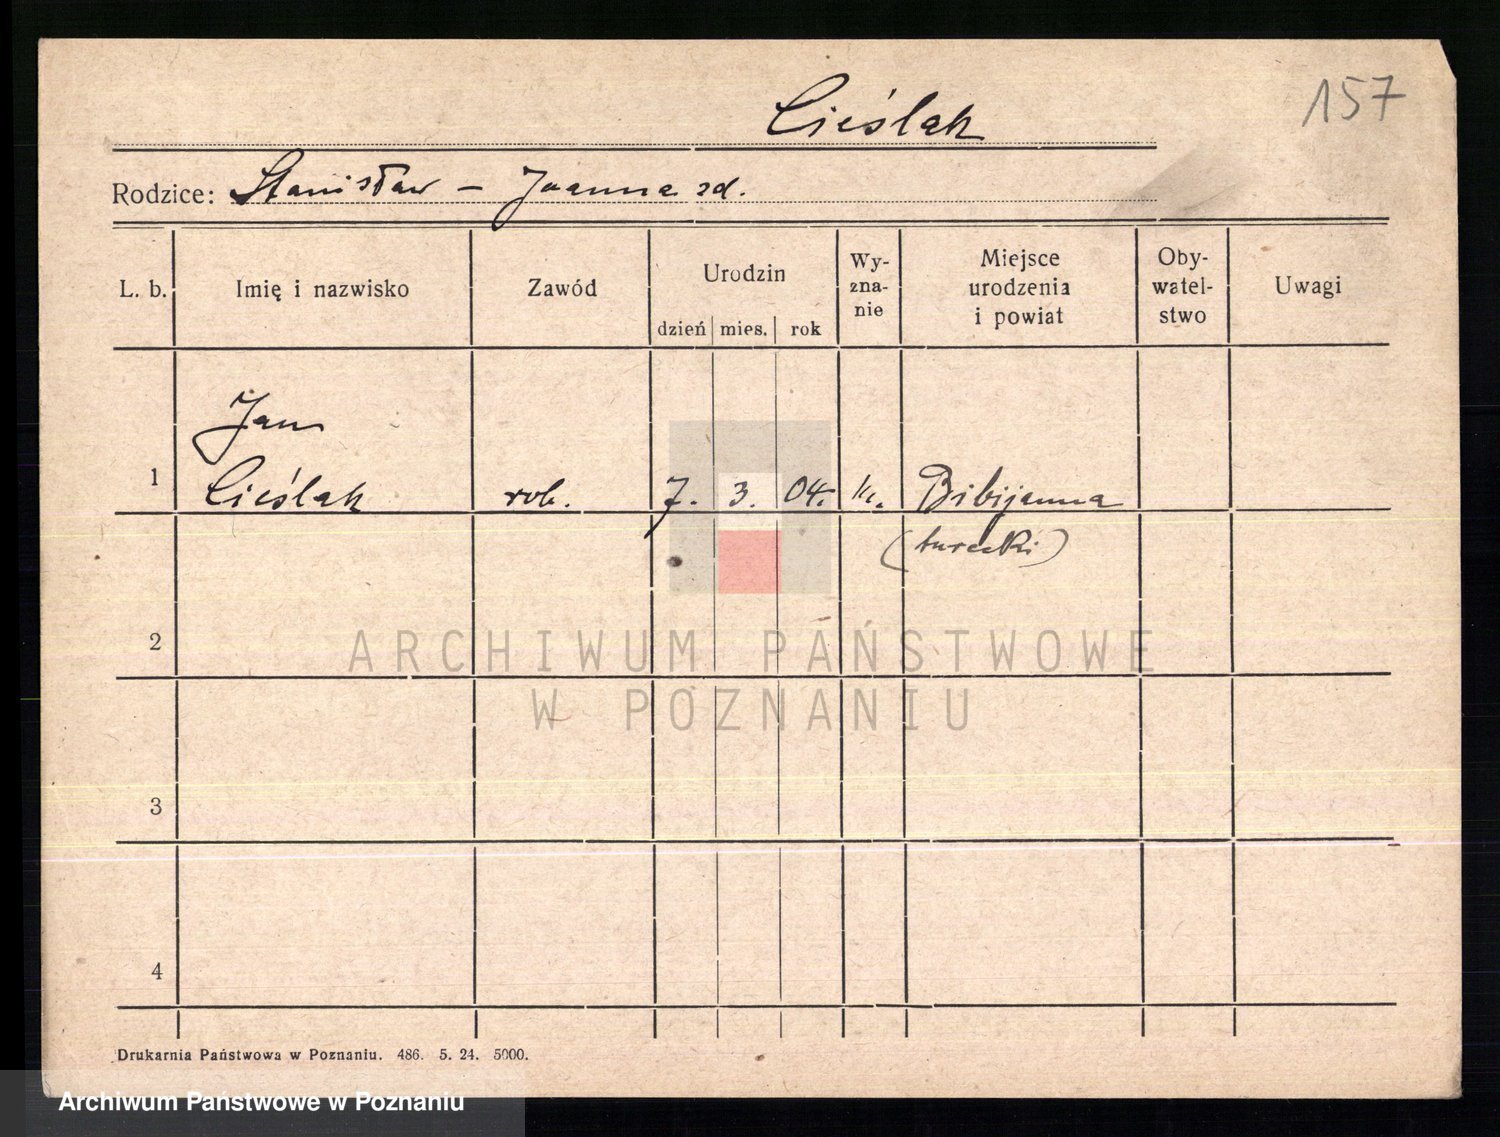 157
Cieślak
Rodzice: Stanisław – Joanna zd.
L. b. Imię i nazwisko Zawód Urodzin dzień mies. rok Wy-zna-nie Miejsce urodzenia i powiat Oby-watel-stwo Uwagi
Jan
1 Cieślak rob. 7. 3. 04. kt. Bibijanna
(turecki)
2
ARCHIWUM PAŃSTWOWE
W POZNANIU
3
4
Drukarnia Państwowa w Poznaniu. 486. 5. 24. 5000.
Archiwum Państwowe w Poznaniu